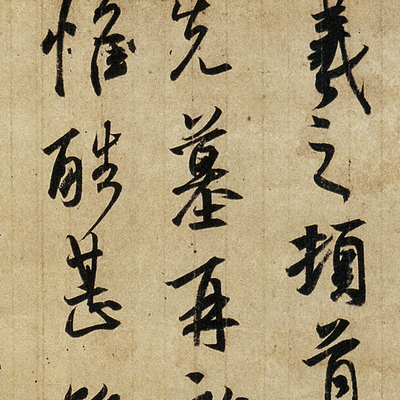 羲之頓首
先墓再
惟酷甚